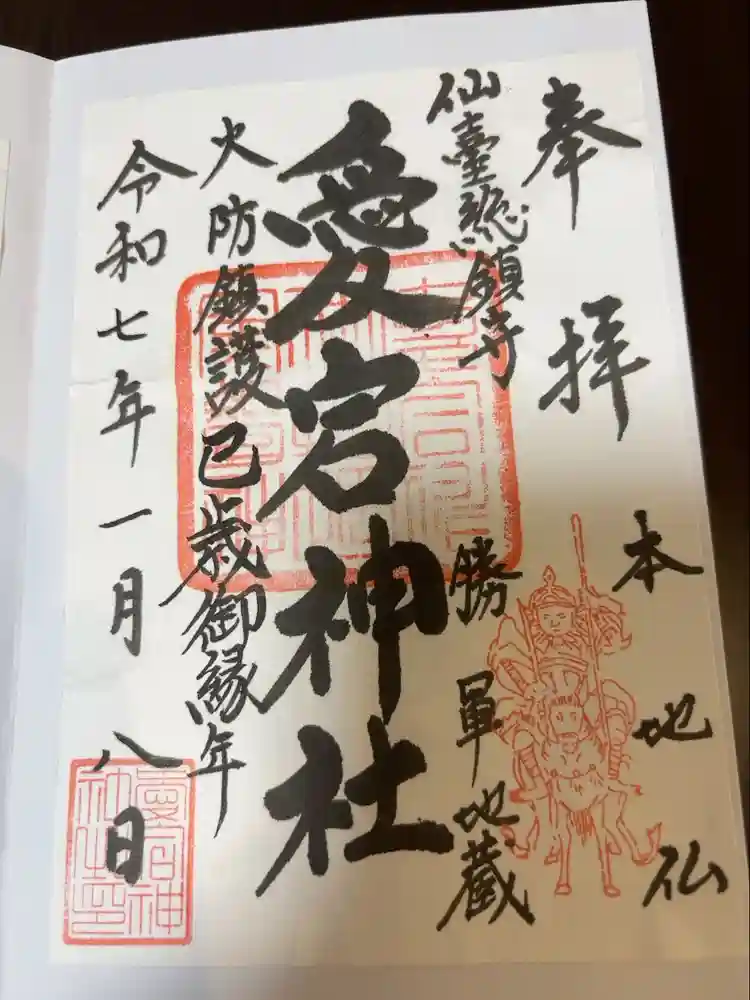 奉拝
本地仏
仙臺総鎮守
勝軍地蔵
愛宕神社
火防鎮護巳歳御縁年
令和七年一月八日
愛宕神
社之印